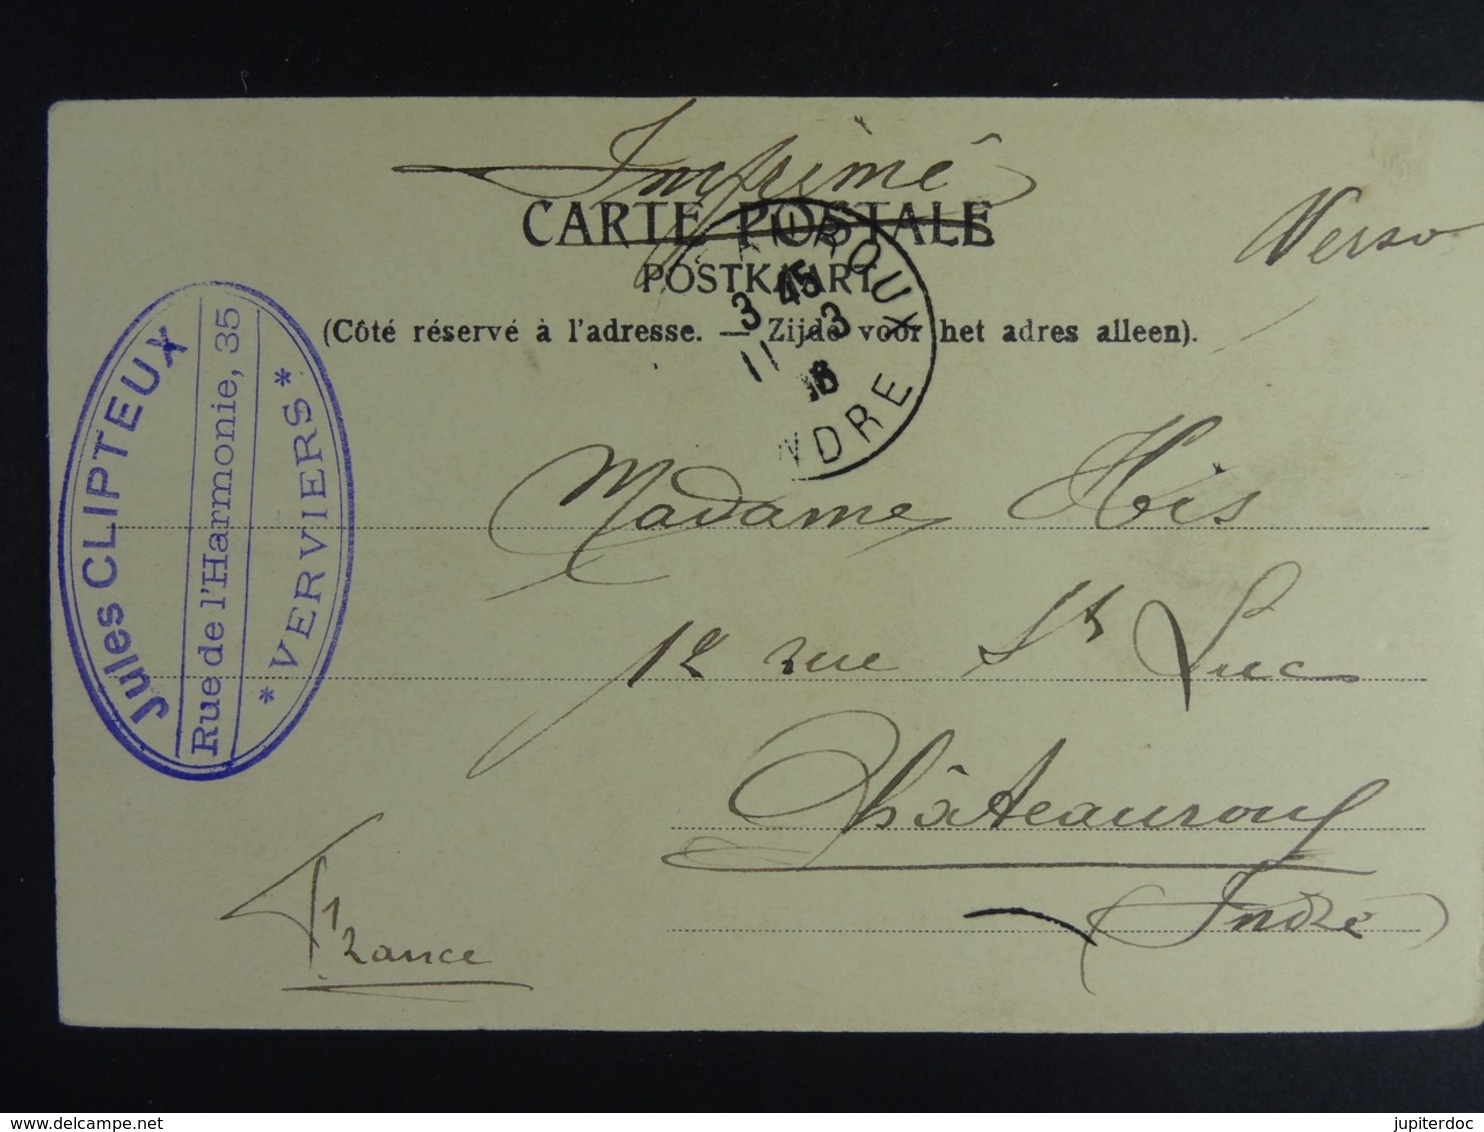 Imprimé
CARTE POSTALE
Verso
POSTKAART
(Côté réservé à l'adresse. — Zijde voor het adres alleen).
3 45
11 3
NDRE
Jules CLIPTEUX
Rue de l'Harmonie, 35
* VERVIERS *
Madame His
12 rue St Luc
Châteauroux
Indre
France
delcampe.net
jupiterdoc